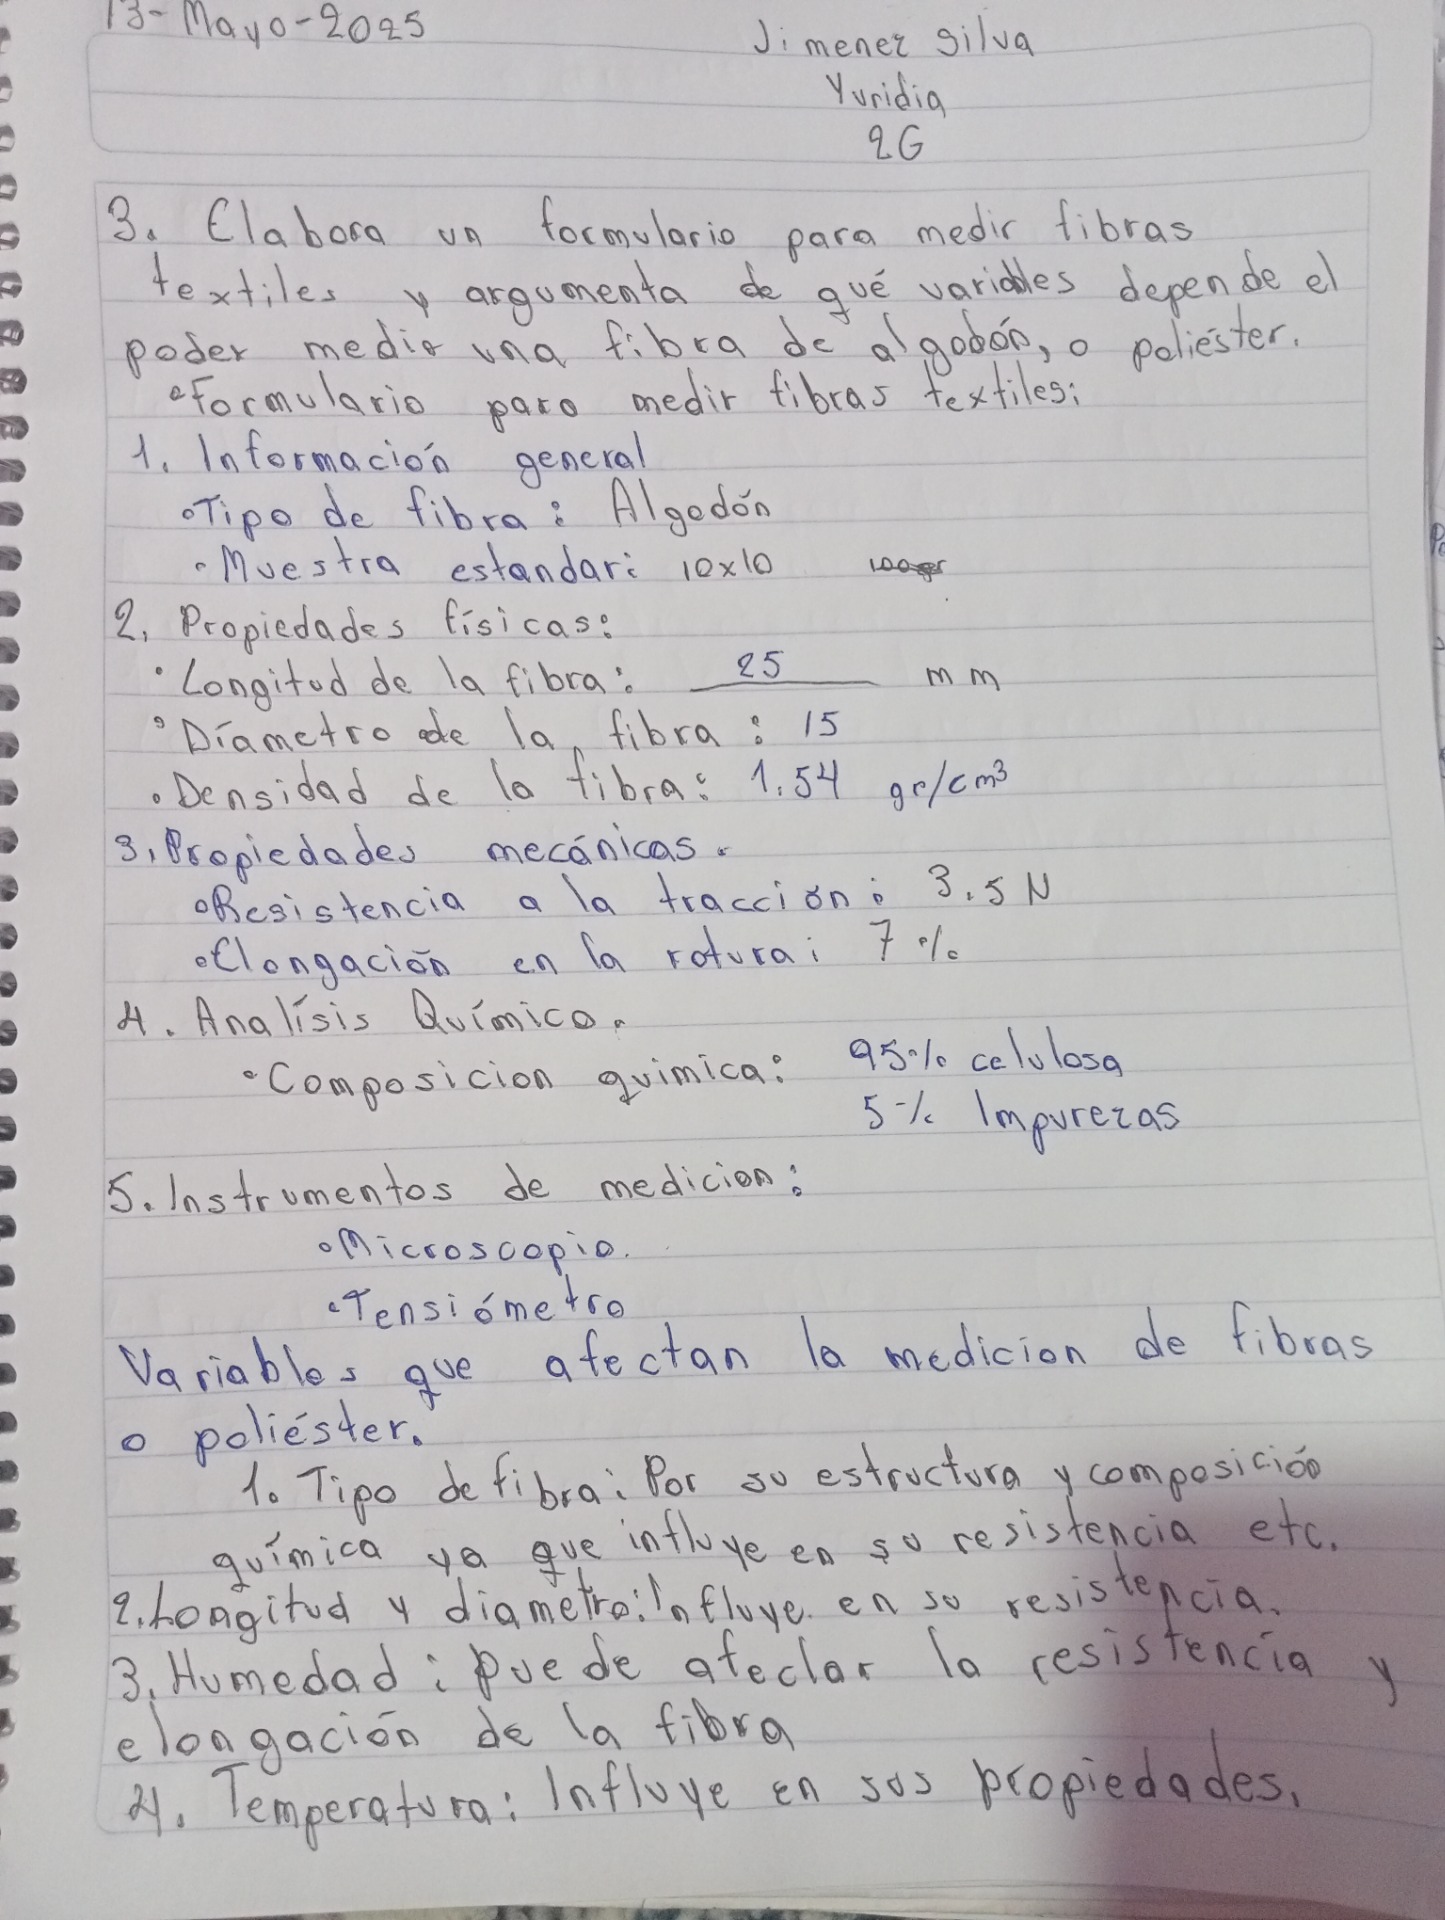 13-Mayo-2025
Jimenez Silva
Yuridia
2G
3. Elabora un formulario para medir fibras
textiles y argumenta de qué variables depende el
poder medir una fibra de algodón, o poliéster.
•Formulario para medir fibras textiles:
1. Información general
•Tipo de fibra: Algodón
•Muestra estandar: 10x10
2. Propiedades físicas:
•Longitud de la fibra: 25 mm
•Díametro de la fibra: 15
•Densidad de la fibra: 1.54 gr/cm³
3, Propiedades mecánicas.
•Resistencia a la tracción: 3.5 N
•Elongación en la rotura: 7 %
4. Analísis Químico.
•Composicion quimica: 95% celulosa
5% Impurezas
5. Instrumentos de medicion:
•Microscopio.
•Tensiómetro
Variables que afectan la medicion de fibras
o poliéster.
1. Tipo de fibra: Por su estructura y composición
química ya que influye en su resistencia etc.
2. Longitud y diametro: Influye en su resistencia.
3. Humedad: Puede afectar la resistencia y
elongación de la fibra
4. Temperatura: Influye en sus propiedades.